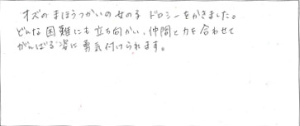 オズのまほうつかいの女の子 ドロシーをかきました。
どんな困難にも立ち向かい、仲間と力を合わせて
がんばる姿に勇気付けられます。